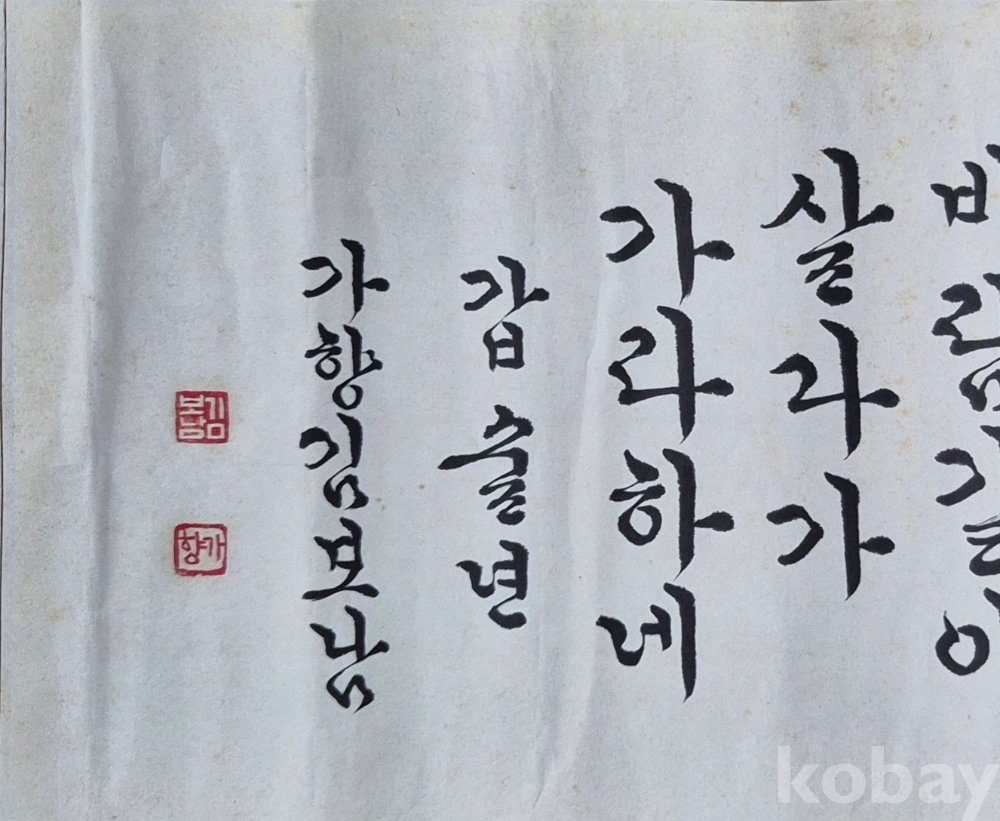 바람같이
살다가
가라하네
갑술년
가향김보남
김보남
가향
kobay